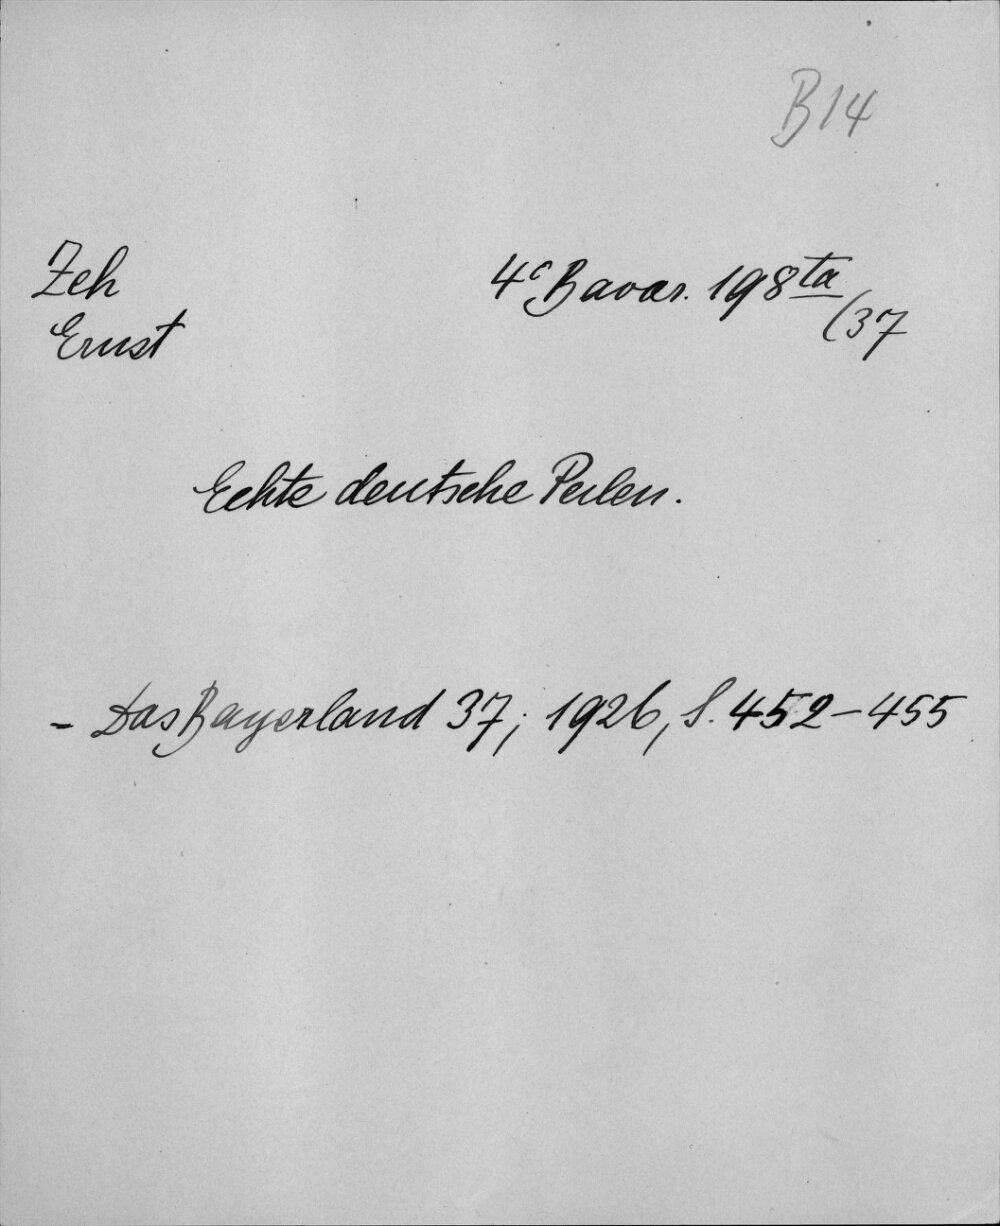 B14
Zeh
4° Bavar. 198 ta
(37
Ernst
Echte deutsche Perlen.
- Das Bayerland 37, 1926, S. 452-455